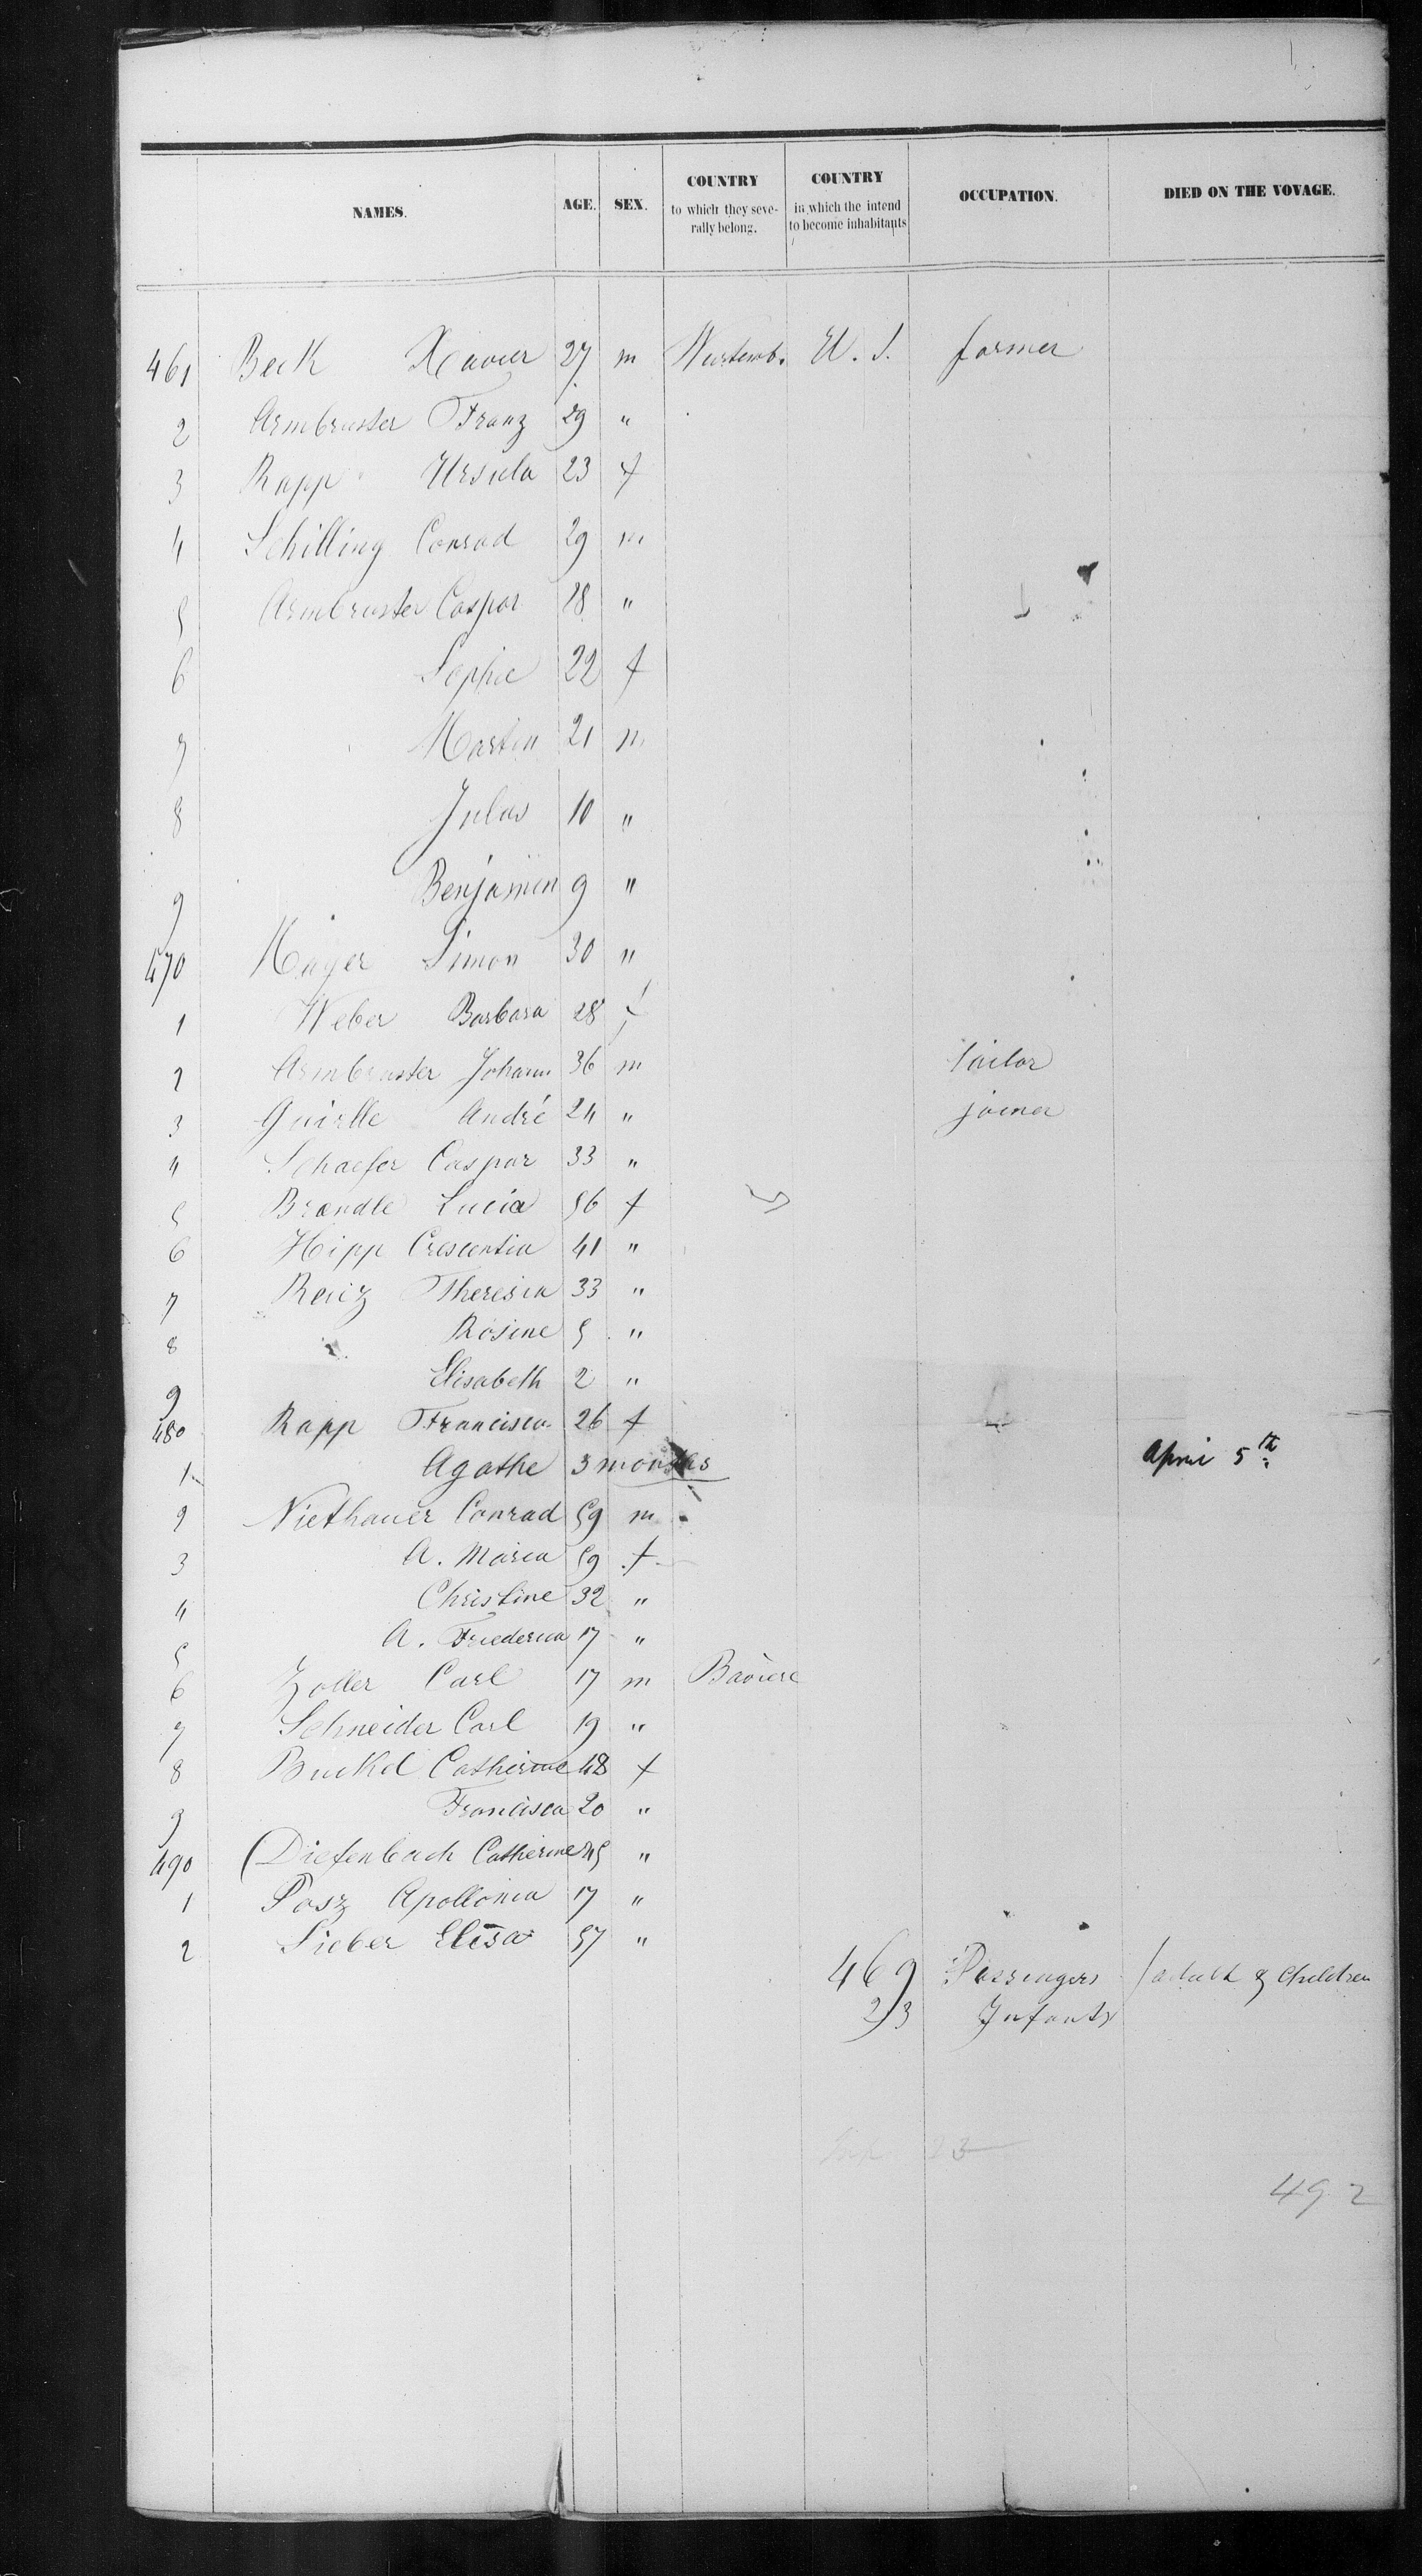 NAMES. AGE. SEX. COUNTRY to which they seve- rally belong. COUNTRY in which the intend to become inhabitants OCCUPATION. DIED ON THE VOYAGE.
461 Beck Xavier 27 m Wurtemb. U. S. farmer
2 Armbruster Franz 29 "
3 Rapp Ursula 23 f
4 Schilling Conrad 29 m
5 Armbruster Caspar 28 "
6 Sophie 22 f
7 Martin 21 m
8 Julas 10 "
9 Benjamin 9 "
470 Mayer Simon 30 "
1 Weber Barbara 28 f
2 Armbruster Johann 36 m tailor
3 André 24 " joiner
4 Schaefer Caspar 33 "
5 Brandle Lucia 56 f
6 Hipp Crescentia 41 "
7 Reiz Theresia 33 "
8 Rosine 5 "
9 Elisabeth 2 "
480 Rapp Francisca 26 f
1 Agathe 3 months April 5th
2 Niethauer Conrad 59 m
3 A. Maria 59 f
4 Christine 32 "
5 A. Friederica 17 "
6 Zoller Carl 17 m Baviere
7 Schneider Carl 19 "
8 Buckel Catherine 48 f
9 Francisca 20 "
490 Diefenbach Catherine 45 "
1 Posz Apollonia 17 "
2 Sieber Elisa 57 "
469 Passengers adult & Children
23 Infants
23
492